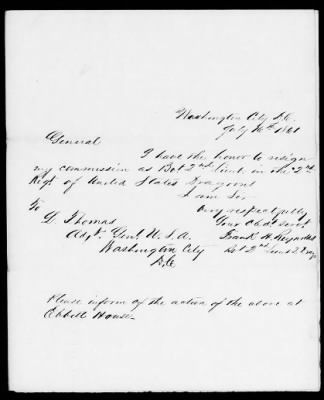 Washington City D.C.
July 16th 1861
General
I have the honor to resign
my commission as Bvt 2nd Lieut. in the 2nd
Regt of United States Dragoons
I am Sir
Very respectfully
Your Obdt Servt
Frank A. Reynolds
Bvt 2nd Lieut 2 Drags
To
L Thomas
Adjt. Genl U.S.A.
Washington City
D.C.
Please inform of the action of the above at
Ebbitt House